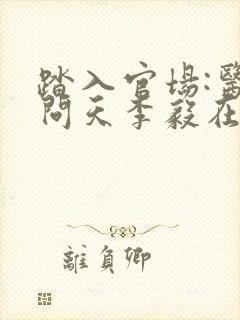 踏入官場:醫
問天李毅在
離負卿